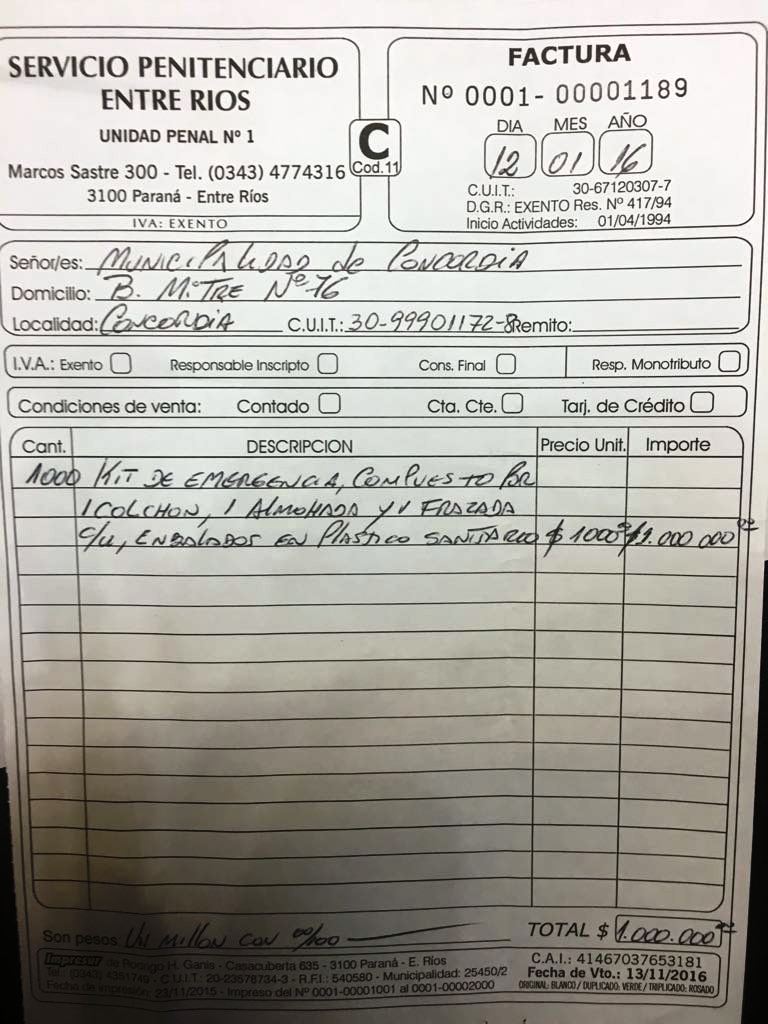 SERVICIO PENITENCIARIO
ENTRE RIOS
UNIDAD PENAL Nº 1
Marcos Sastre 300 - Tel. (0343) 4774316
3100 Paraná - Entre Ríos
IVA: EXENTO
C
Cod.11
FACTURA
Nº 0001- 00001189
DIA MES AÑO
12 01 16
C.U.I.T.: 30-67120307-7
D.G.R.: EXENTO Res. Nº 417/94
Inicio Actividades: 01/04/1994
Señor/es: MUNICIPALIDAD de CONCORDIA
Domicilio: B. MITRE Nº 76
Localidad: CONCORDIA C.U.I.T.: 30-99901172-8 Remito:
I.V.A.: Exento Responsable Inscripto Cons. Final Resp. Monotributo
Condiciones de venta: Contado Cta. Cte. Tarj. de Crédito
Cant. DESCRIPCION Precio Unit. Importe
1000 KIT DE EMERGENCIA, COMPUESTO POR
1 COLCHON, 1 ALMOHADA Y 1 FRAZADA
c/u, ENBALADOS EN PLASTICO SANITARIO $ 1000 $1.000.000
Son pesos: UN MILLON CON 00/100 TOTAL $ 1.000.000
Impresur de Rodrigo H. Ganis - Casacuberta 635 - 3100 Paraná - E. Ríos
Tel.: (0343) 4351749 - C.U.I.T.: 20-23578734-3 - R.F.I.: 540580 - Municipalidad: 25450/2
Fecha de impresión: 23/11/2015 - Impreso del Nº 0001-00001001 al 0001-00002000
C.A.I.: 41467037653181
Fecha de Vto.: 13/11/2016
ORIGINAL: BLANCO / DUPLICADO: VERDE / TRIPLICADO: ROSADO